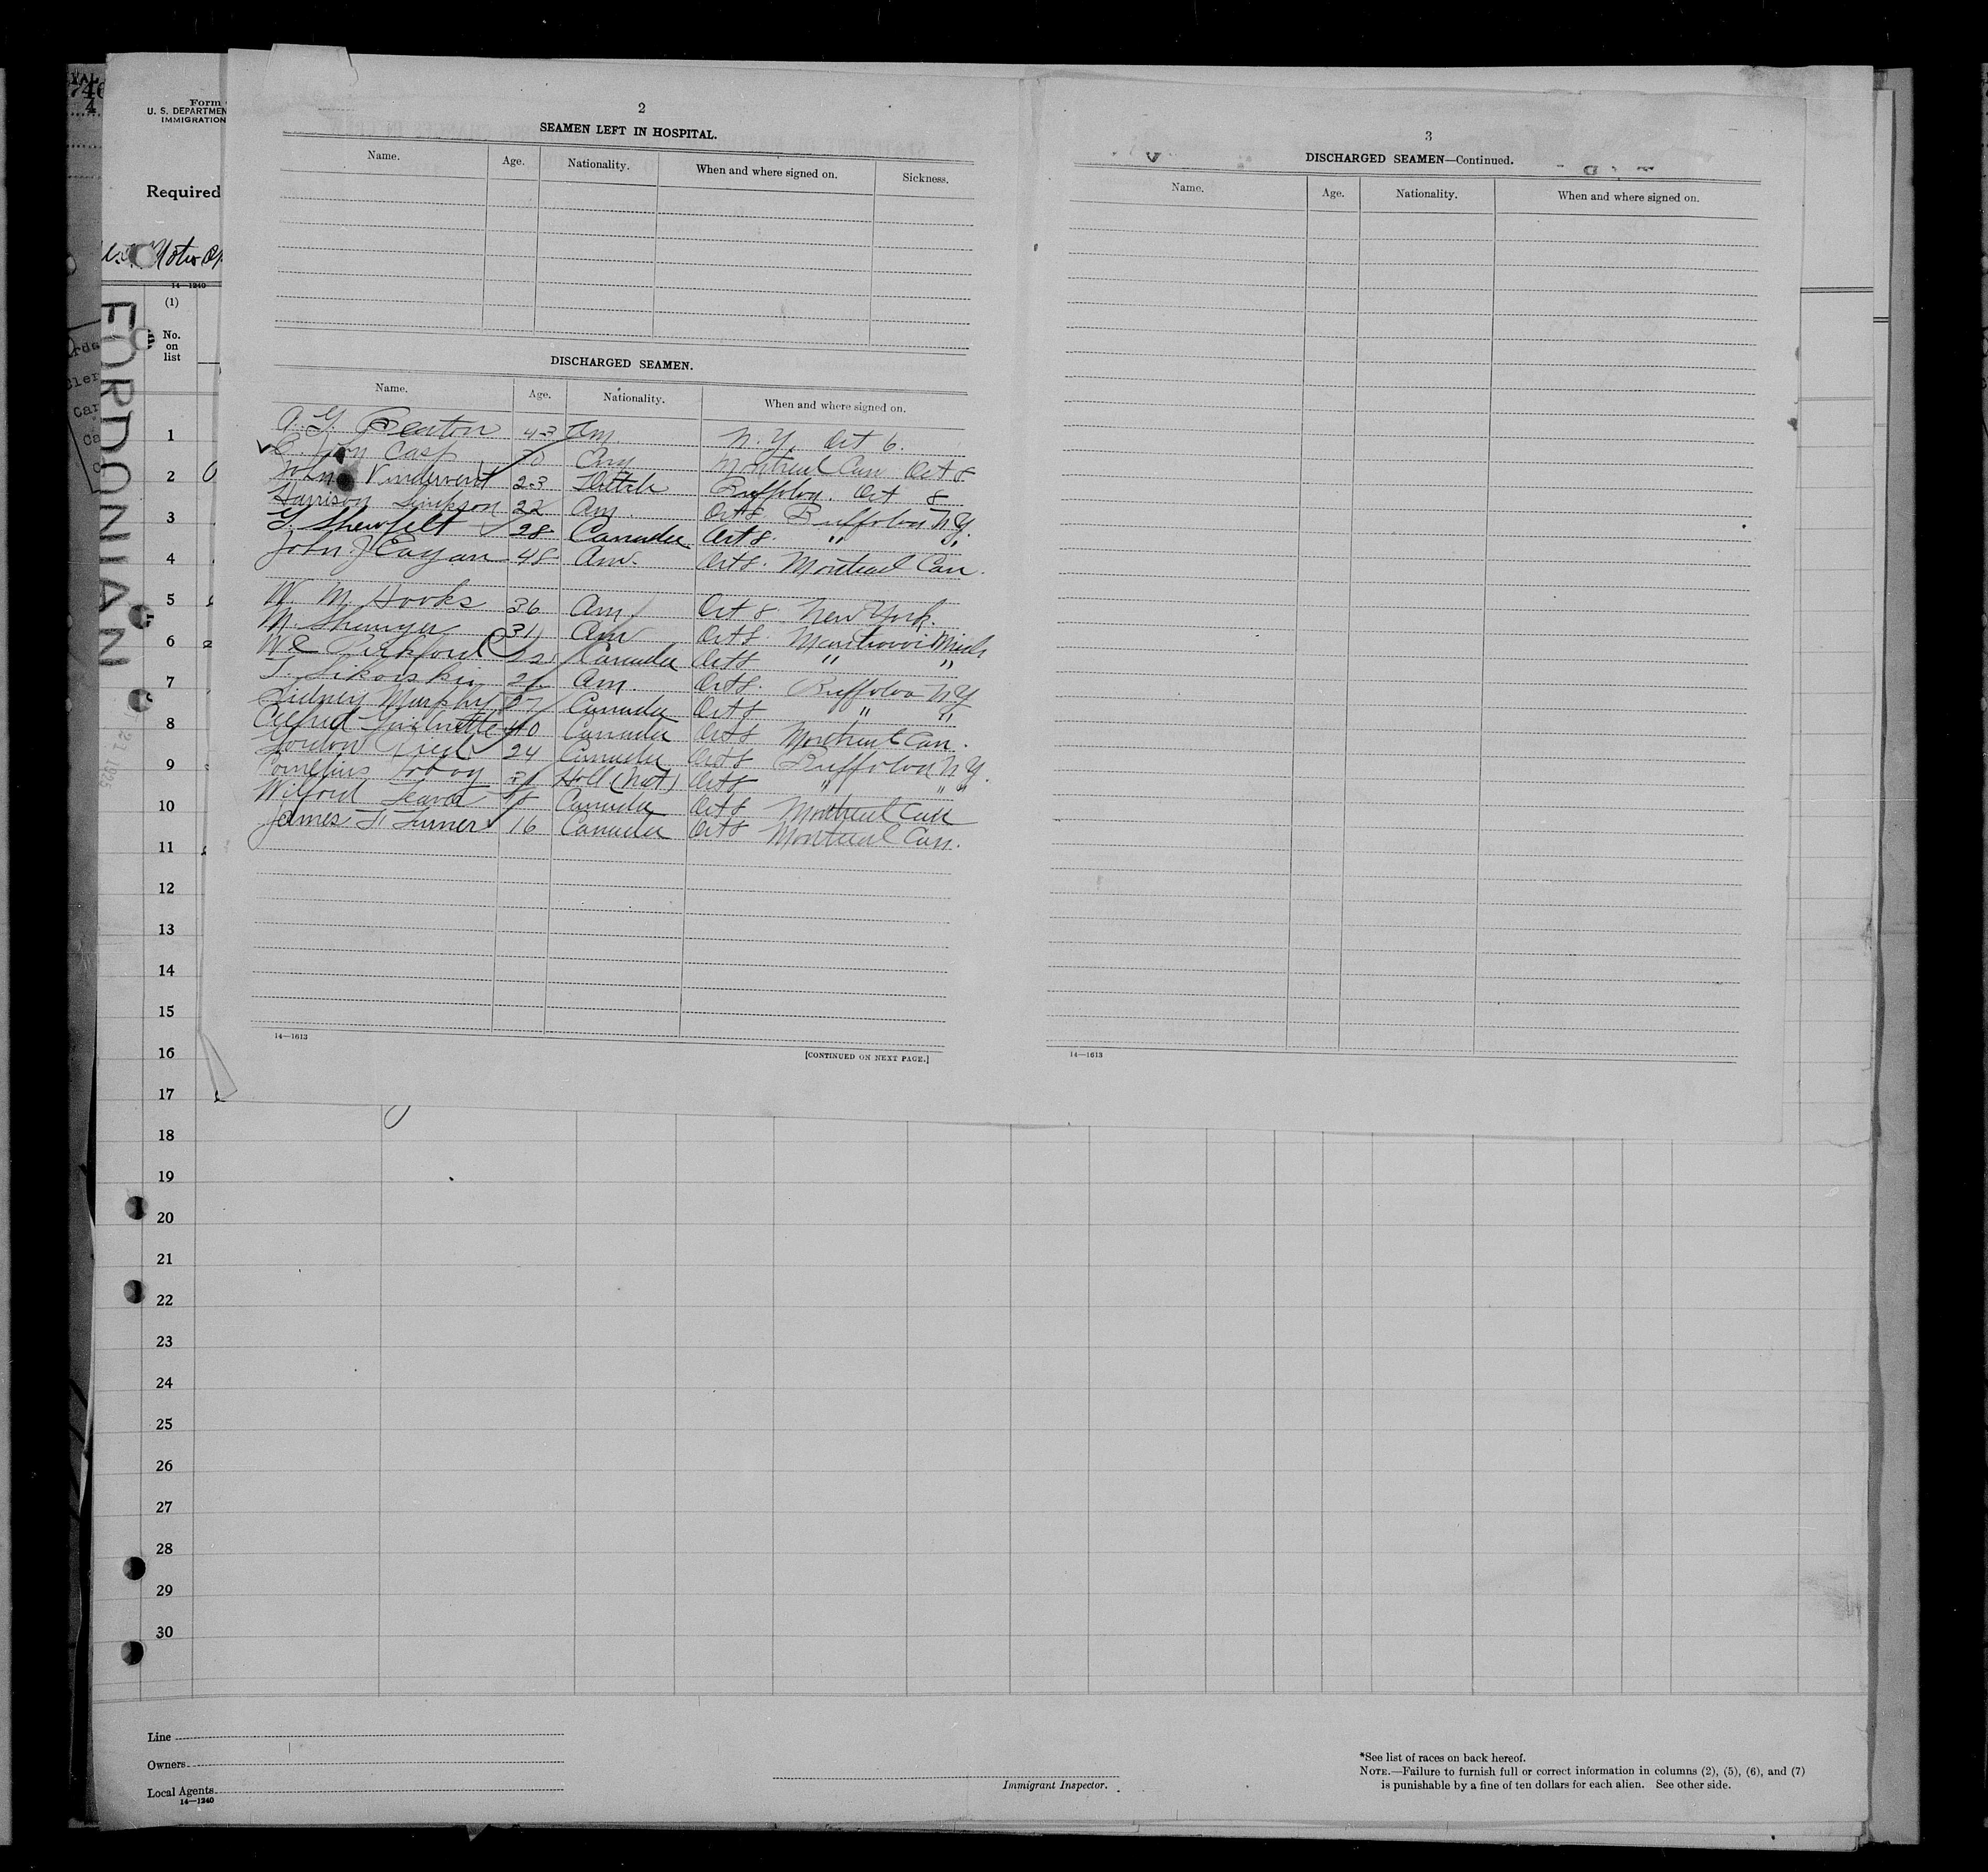 Form
U. S. DEPARTMEN
IMMIGRATION
Required
14—1240
(1)
No.
on
list
FORDONIAN
2
SEAMEN LEFT IN HOSPITAL.
Name. Age. Nationality. When and where signed on. Sickness.
DISCHARGED SEAMEN.
Name. Age. Nationality. When and where signed on.
43 Am. N. Y. Oct 6.
Montreal Can Oct 8
John 23 Buffalo Oct 8
Harrison Simpson 22 Am. Oct 8. Buffalo N Y.
G. Shewfelt 28 Canada Oct 8. " "
John J Eagan 48 Am. Oct 8. Montreal Can.
W M Hooks 36 Am. Oct 8 New York.
M. 31 Am Oct 8. Mich
W E Pickford 22 Canada Oct 8 " "
T. Sikorski 21 Am. Oct 8. Buffalo N Y
Sidney Murphy 27 Canada Oct 8 " "
40 Canada Oct 8 Montreal Can.
Gordon 24 Canada Oct 8 Buffalo N Y.
Cornelius Holl (Nat) Oct 8 " "
Wilford 18 Canada Oct 8 Montreal Can
James F. Turner 16 Canada Oct 8 Montreal Can.
14—1613
[CONTINUED ON NEXT PAGE.]
3
DISCHARGED SEAMEN—Continued.
Name. Age. Nationality. When and where signed on.
14—1613
1
2
3
4
5
6
7
8
9
10
11
12
13
14
15
16
17
18
19
20
21
22
23
24
25
26
27
28
29
30
Line
Owners
Local Agents
14—1240
Immigrant Inspector.
*See list of races on back hereof.
NOTE.—Failure to furnish full or correct information in columns (2), (5), (6), and (7)
is punishable by a fine of ten dollars for each alien. See other side.